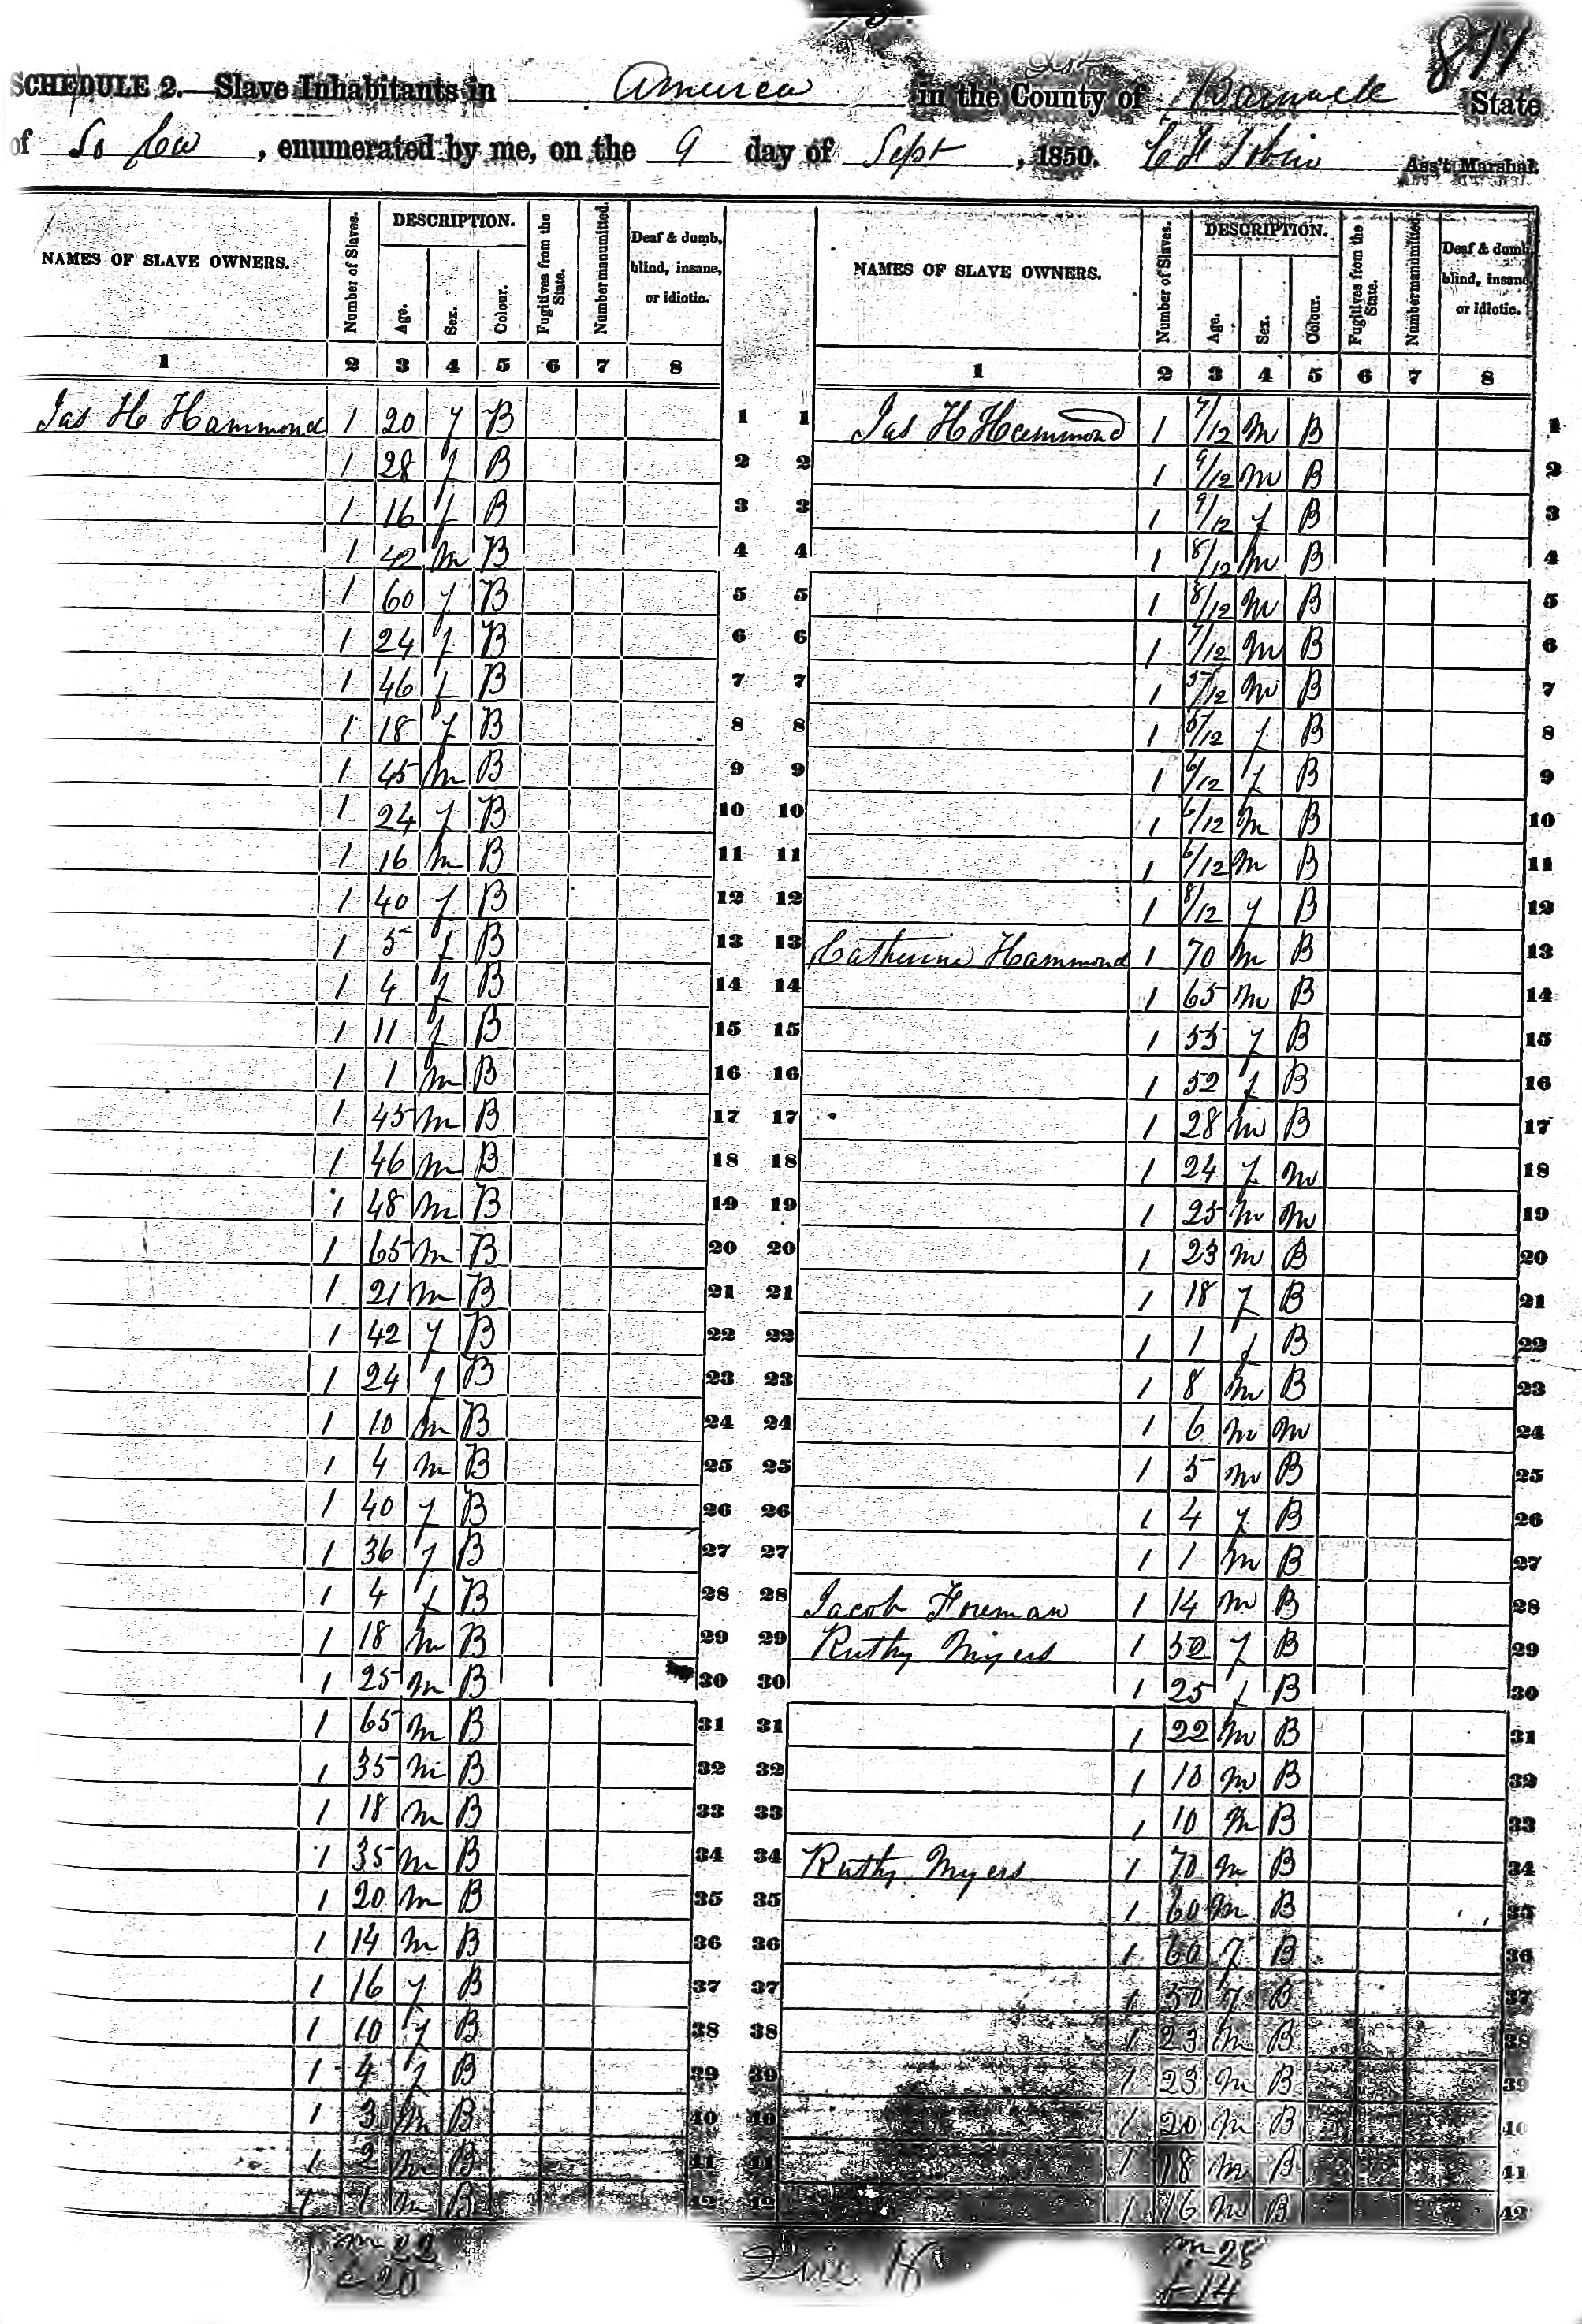 811
SCHEDULE 2.—Slave Inhabitants in America in the County of Barnwell State
of So Ca, enumerated by me, on the 9 day of Sept, 1850. Ass't Marshal.
NAMES OF SLAVE OWNERS. Number of Slaves. DESCRIPTION. Age. Sex. Colour. Fugitives from the State. Number manumitted. Deaf & dumb, blind, insane, or idiotic.
NAMES OF SLAVE OWNERS. Number of Slaves. DESCRIPTION. Age. Sex. Colour. Fugitives from the State. Number manumitted. Deaf & dumb, blind, insane, or idiotic.
1 2 3 4 5 6 7 8 1 2 3 4 5 6 7 8
Jas H Hammond 1 20 f B 1 1 Jas H Hammond 1 7/12 m B 1
1 28 f B 2 2 1 9/12 m B 2
1 16 f B 3 3 1 9/12 f B 3
1 42 m B 4 4 1 8/12 m B 4
1 60 f B 5 5 1 8/12 m B 5
1 24 f B 6 6 1 7/12 m B 6
1 46 f B 7 7 1 5/12 m B 7
1 18 f B 8 8 1 5/12 f B 8
1 45 m B 9 9 1 6/12 f B 9
1 24 f B 10 10 1 6/12 m B 10
1 16 m B 11 11 1 6/12 m B 11
1 40 f B 12 12 1 8/12 f B 12
1 5 f B 13 13 Catherine Hammond 1 70 m B 13
1 4 f B 14 14 1 65 m B 14
1 11 f B 15 15 1 55 f B 15
1 1 m B 16 16 1 52 f B 16
1 45 m B 17 17 1 28 m B 17
1 46 m B 18 18 1 24 f m 18
1 48 m B 19 19 1 25 m m 19
1 65 m B 20 20 1 23 m B 20
1 21 m B 21 21 1 18 f B 21
1 42 f B 22 22 1 1 f B 22
1 24 f B 23 23 1 8 m B 23
1 10 m B 24 24 1 6 m m 24
1 4 m B 25 25 1 5 m B 25
1 40 f B 26 26 1 4 f B 26
1 36 f B 27 27 1 1 m B 27
1 4 f B 28 28 Jacob Foreman 1 14 m B 28
1 18 m B 29 29 Ruthy Myers 1 50 f B 29
1 25 m B 30 30 1 25 f B 30
1 65 m B 31 31 1 22 m B 31
1 35 m B 32 32 1 18 m B 32
1 18 m B 33 33 1 10 m B 33
1 35 m B 34 34 Ruthy Myers 1 70 m B 34
1 20 m B 35 35 1 60 m B 35
1 14 m B 36 36 1 60 f B 36
1 16 f B 37 37 1 50 f B 37
1 10 f B 38 38 1 23 m B 38
1 4 f B 39 39 1 23 m B 39
1 3 m B 40 40 1 20 m B 40
1 2 m B 41 41 1 18 m B 41
1 1 m B 42 42 1 16 m B 42
m 22 m 28
20 f 14